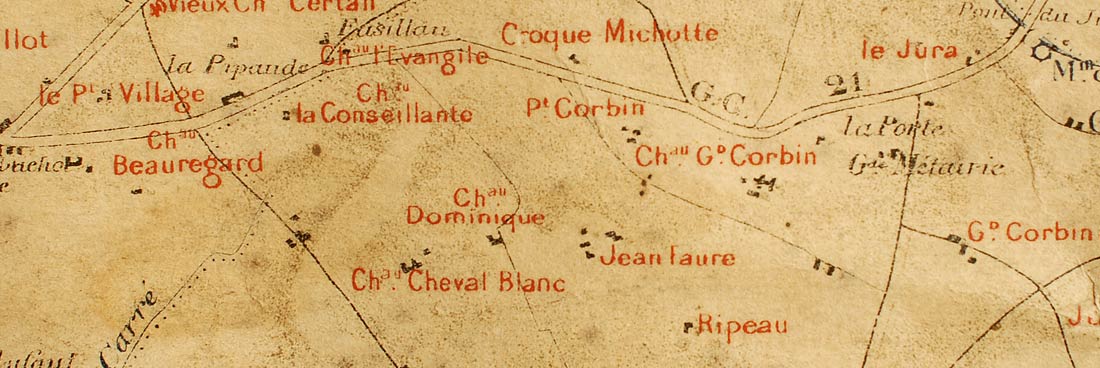 Vieux Ch Certan
Fasillau
Croque Michotte
Pont du J
llot
Chau l'Evangile
le Jura
la Pipaude
le Pt Village
Chau
la Conseillante
Pt Corbin
G.C.
21
la Porte
Chau
Beauregard
Chau Gd Corbin
Gde Métairie
Chau
Dominique
Gd Corbin
Jean Faure
Chau Cheval Blanc
Carré
Ripeau